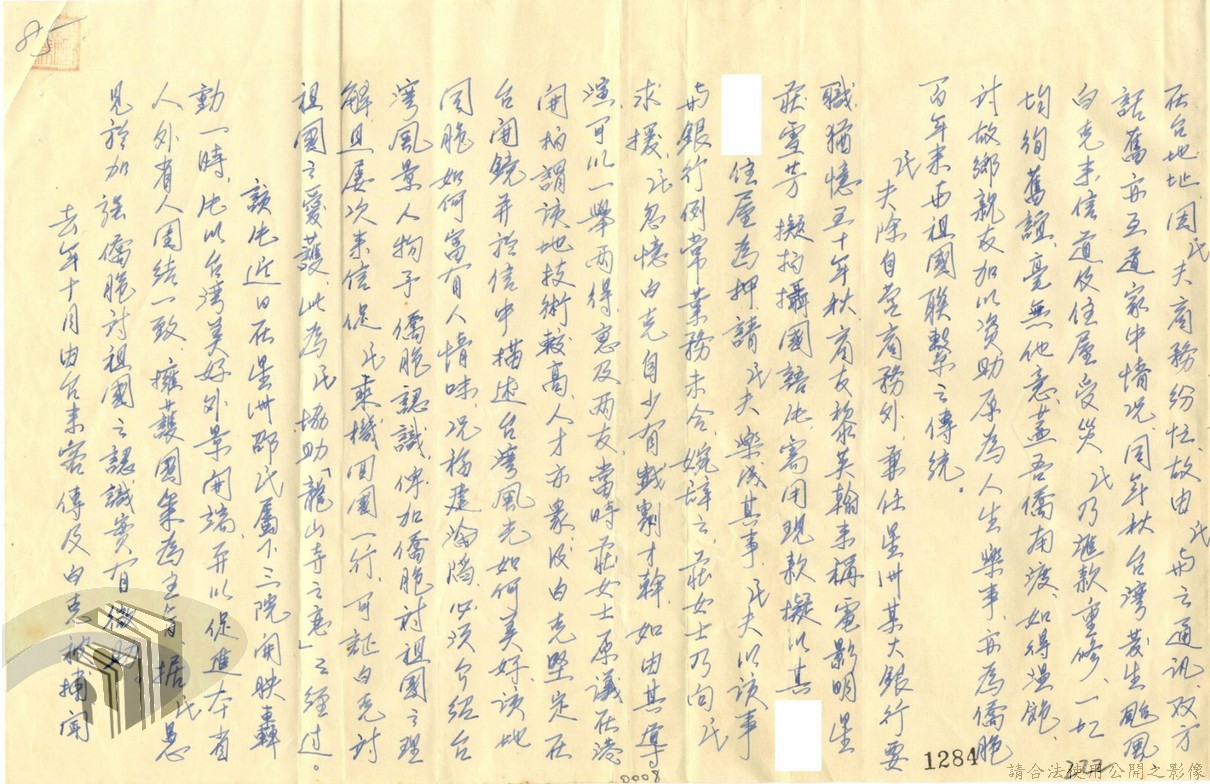 在台地址因氏夫商務紛忙故由氏與之通訊双方
話舊亦互道家中情況同年秋台灣發生颱風
白克來信道及住屋受災氏乃滙款重修一切
均徇舊誼毫無他意蓋吾僑南渡如得溫飽
討故鄉親友加以資助原為人生樂事亦為僑胞
百年來與祖國聯繫之傳統。
氏夫除自營商務外兼任星洲某大銀行要
職猶憶五十年秋商友黎英翰來稱電影明星
莊雪芳擬拍攝國語片需用現款擬以其
住屋為押請氏夫樂成其事氏夫以該事
與銀行例常業務未合婉辞之莊女士乃向氏
求援氏忽憶白克自少有戲劇才幹如由其導
演可以一舉兩得惠及兩友當時莊女士原議在港
開拍謂該地技術較高人才亦眾及白克堅定在
台開鏡并於信中描述台灣風光如何美好該地
同胞如何富有人情味況福建淪陷必須介紹台
灣風景人物予僑胞認識俾加僑胞討祖國之理
解且屡次來信促氏乘機回國一行可証白克討
祖國之愛護此為氏協助「龍山寺之戀」之經过。
該片近日在星洲邵氏屬下三院開映轟
動一時片以台湾美好外景開端并以促進本省
人外省人團結一致擁護國策為主旨據氏愚
見於加強僑胞討祖國之認識實有微助
去年十月由台來客傳及白克被捕聞
1284
0008
請合法使用公開之影像